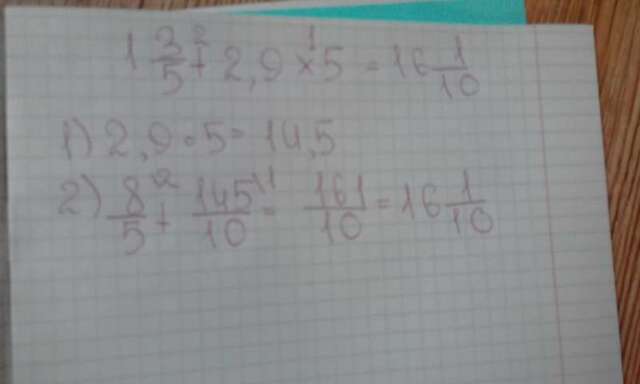 1 3/5 ² + 2,9 × 5 ¹ = 16 1/10
1) 2,9 · 5 = 14,5
2) 8/5 \² + 145/10 \¹ = 161/10 = 16 1/10